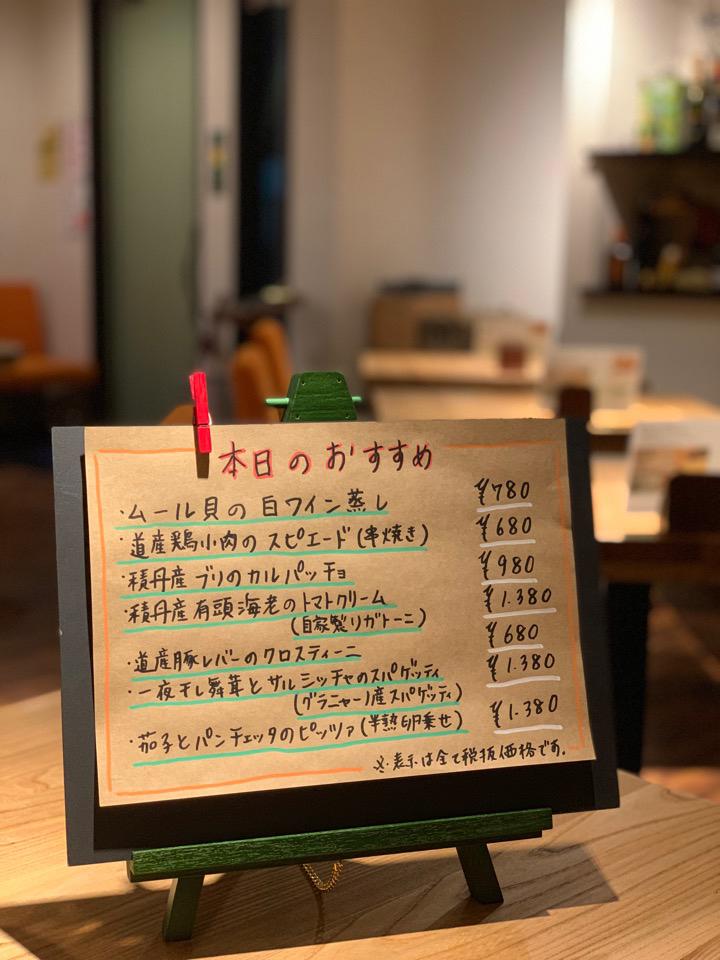 本日のおすすめ
・ムール貝の白ワイン蒸し ¥780
・道産鶏小肉のスピエード(串焼き) ¥680
・積丹産ブリのカルパッチョ ¥980
・積丹産有頭海老のトマトクリーム ¥1.380
(自家製リガトーニ)
・道産豚レバーのクロスティーニ ¥680
・一夜干し舞茸とサルシッチャのスパゲッティ ¥1.380
(グラニャーノ産スパゲッティ)
・茄子とパンチェッタのピッツァ(半熟卵乗せ) ¥1.380
※表示は全て税抜価格です。